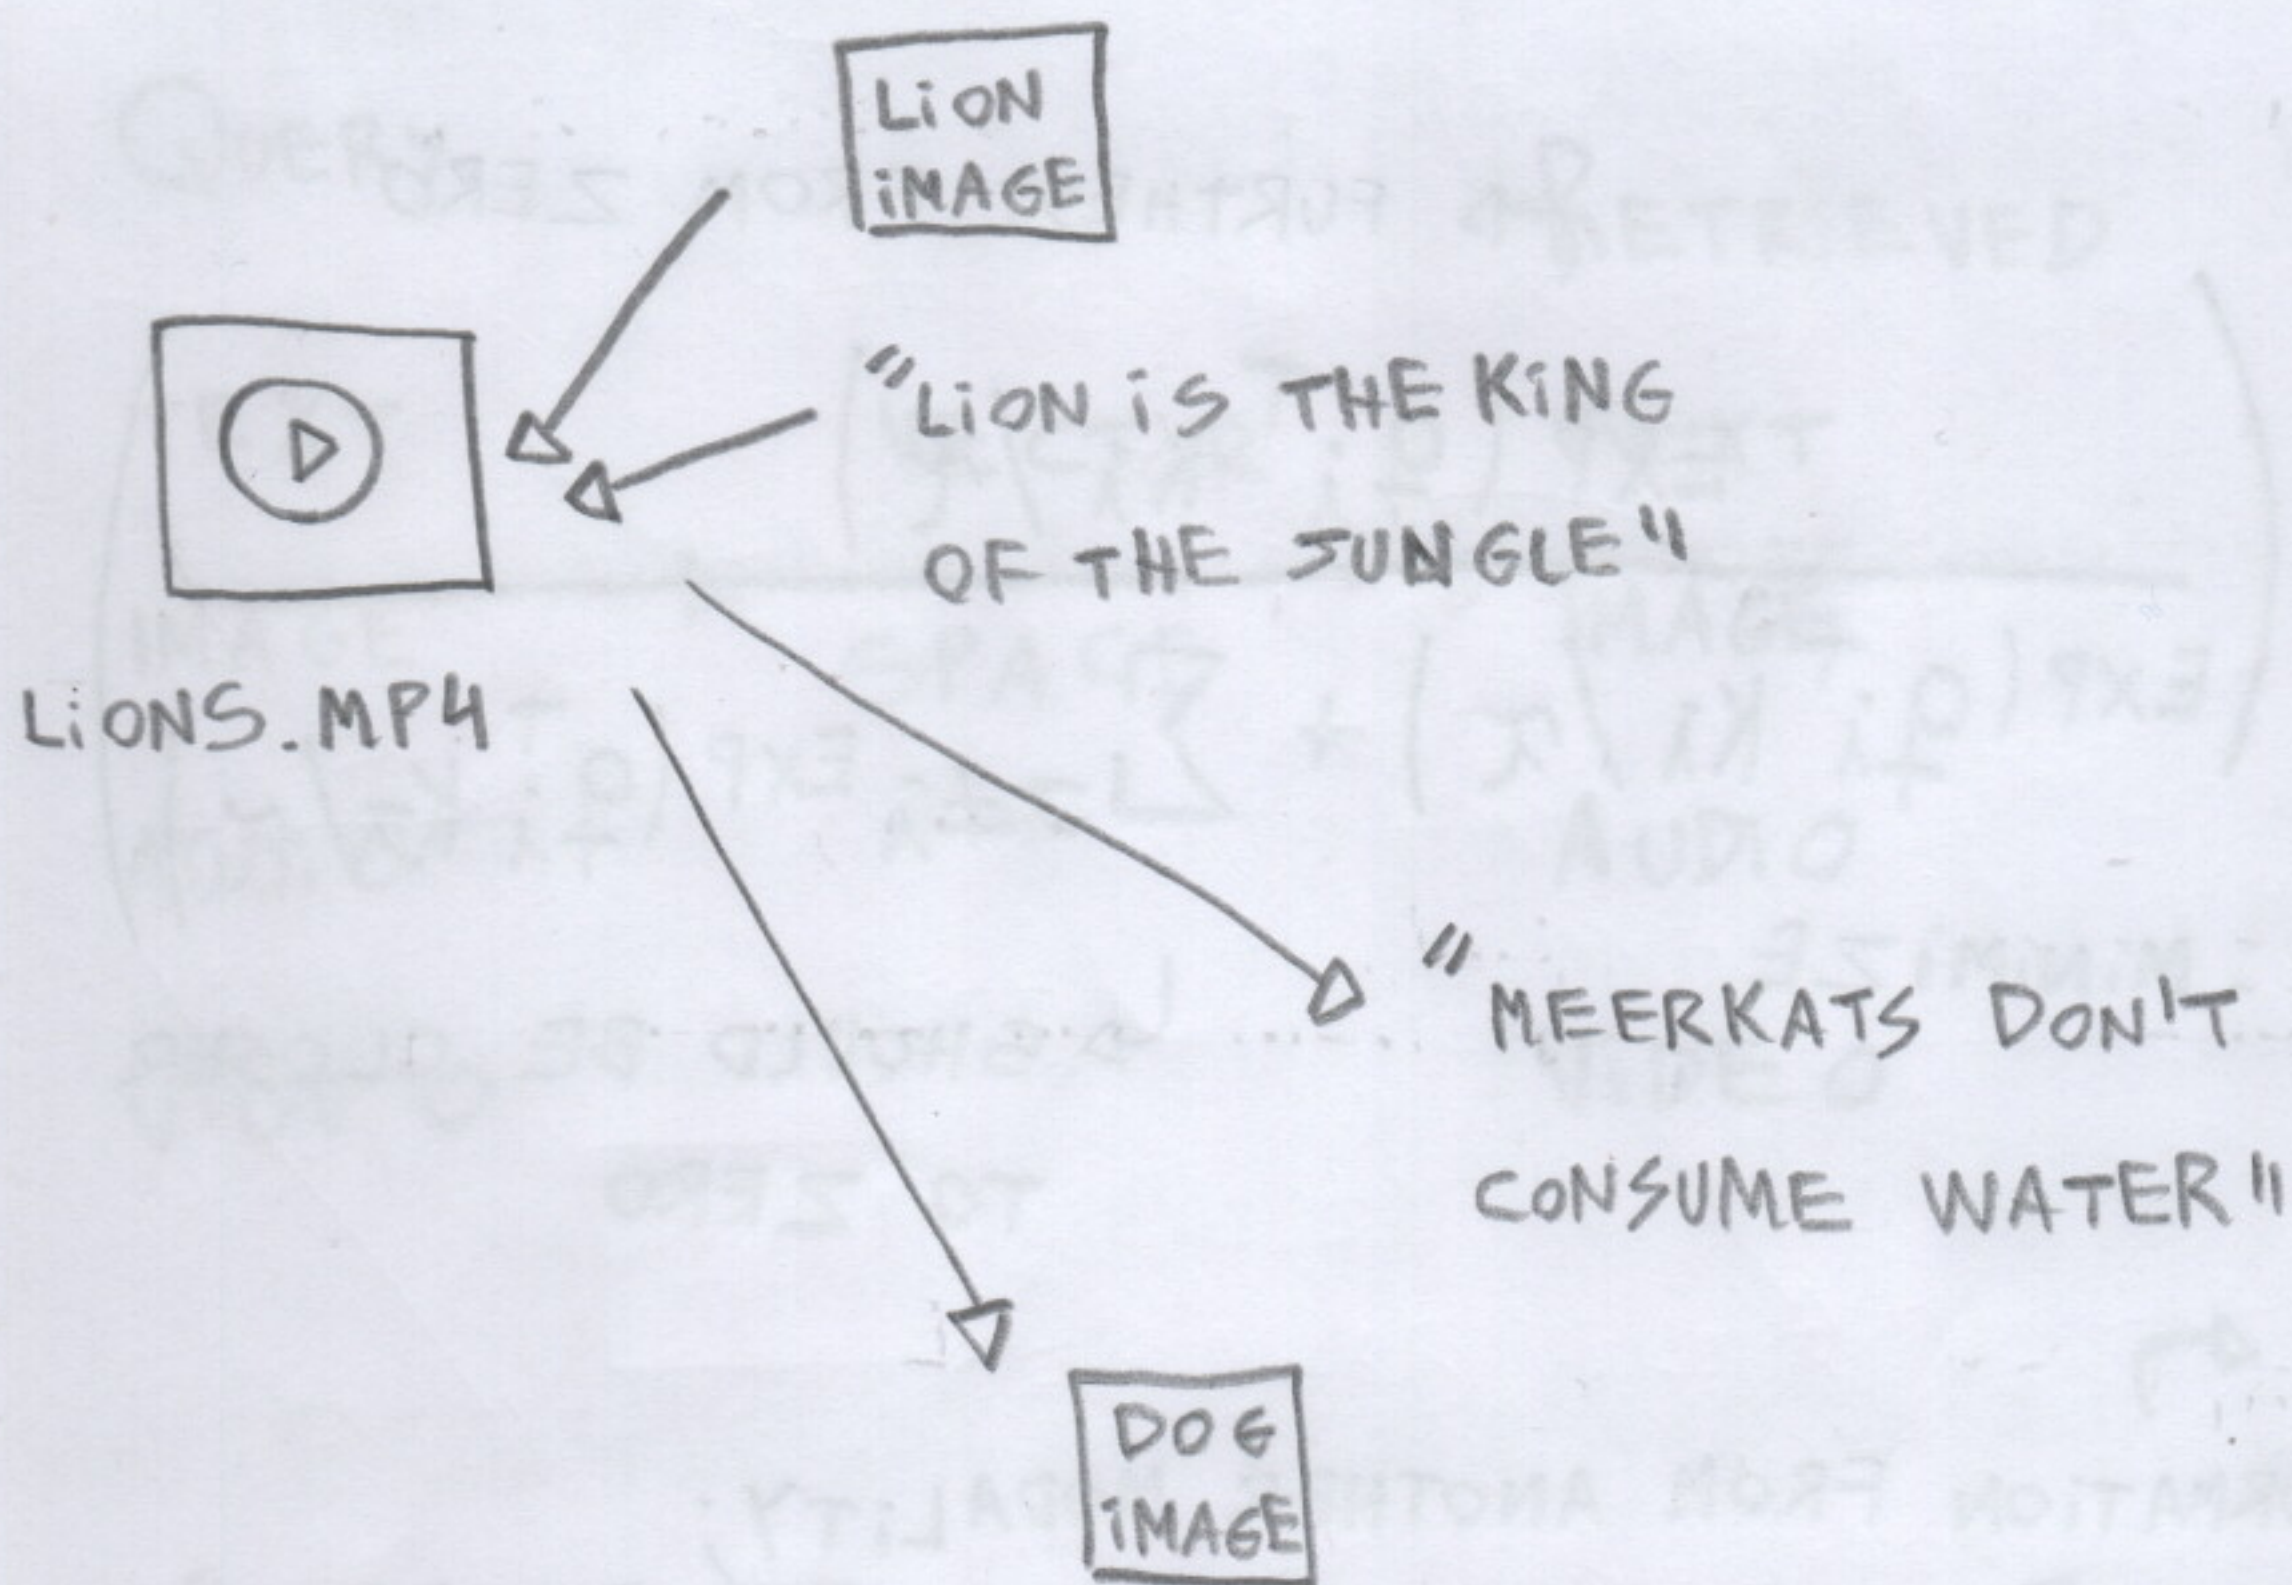 LiON
iMAGE
"LiON iS THE KiNG
OF THE JUNGLE"
LiONS.MP4
"MEERKATS DON'T
CONSUME WATER"
DOG
iMAGE